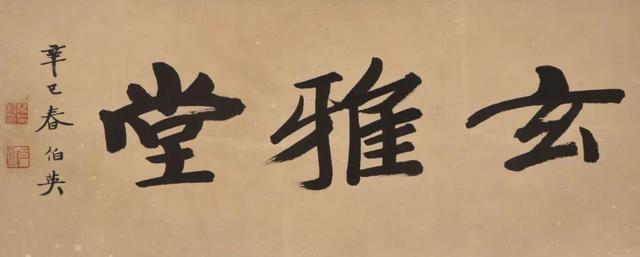 玄雅堂
辛巳春
伯英